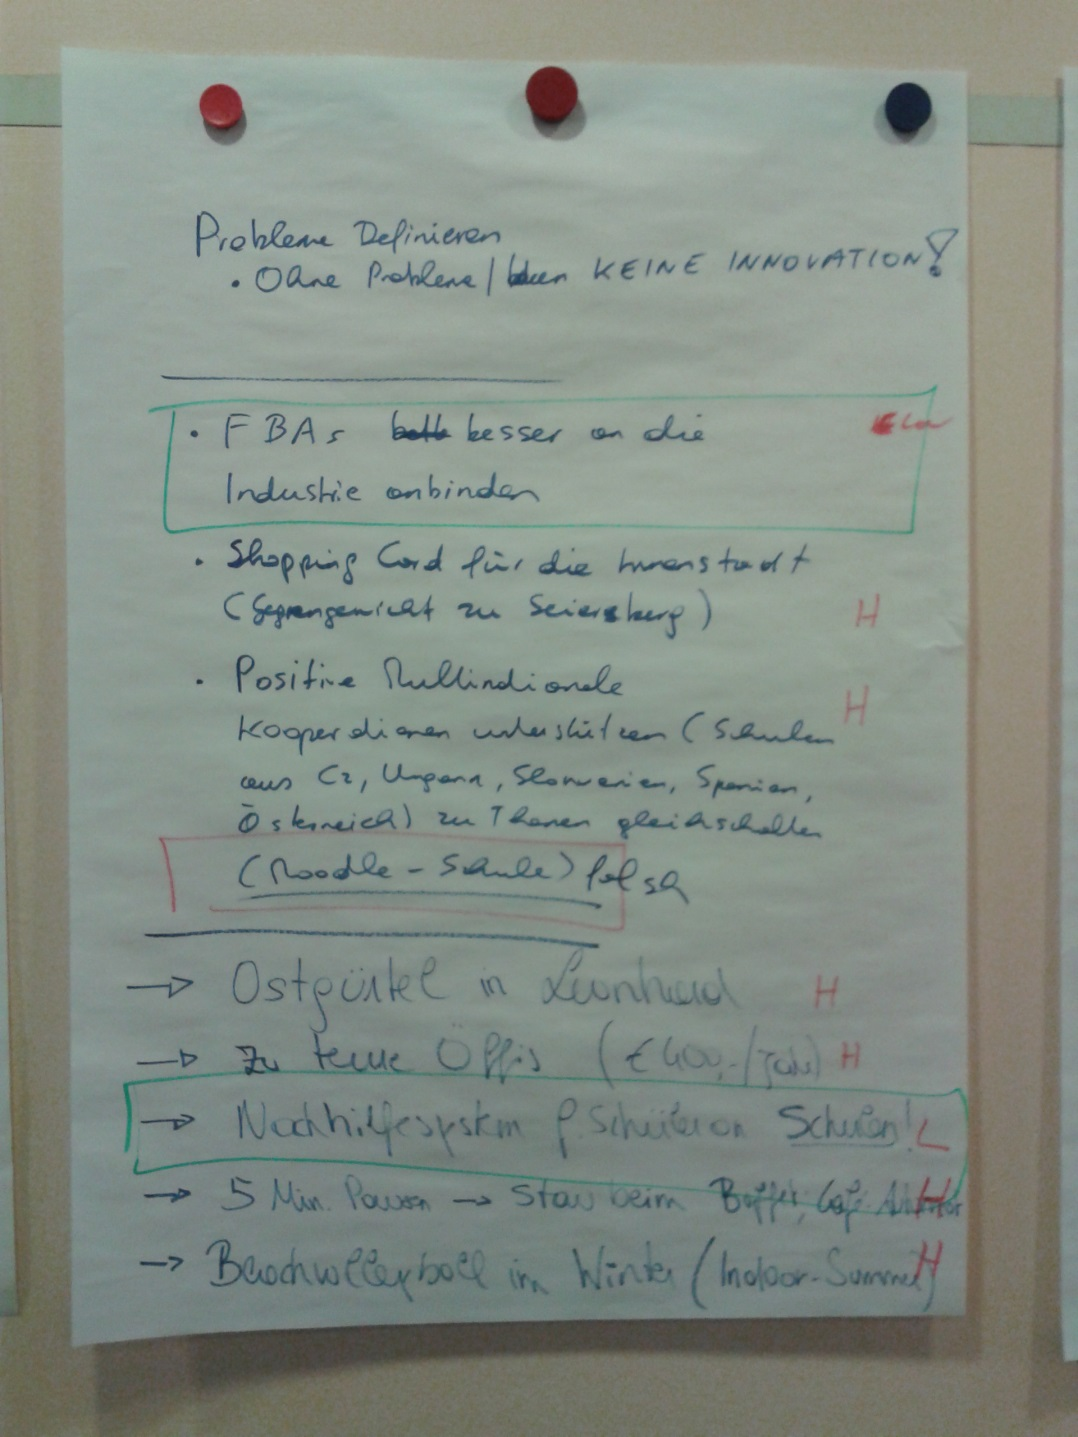 Probleme Definieren
• Ohne Probleme / KEINE INNOVATION!
• FBAs besser an die
Industrie anbinden
• Shopping Card für die Innenstadt
(Gegengewicht zu Seiersberg) H
• Positive Multinationale H
Kooperationen unterstützen (Schulen
aus CZ, Ungarn, Slowenien, Spanien,
Österreich) zu Themen gleichschalten
(Moodle - Schule)
→ Ostgürtel in Leonhard H
→ Zu teure Öffis (€ 400,-/Jahr) H
→ Nachhilfesystem f. Schüler an Schulen! L
→ 5 Min. Pausen → Stau beim Buffet, H
→ Beachvolleyball im Winter (Indoor-Summer) H